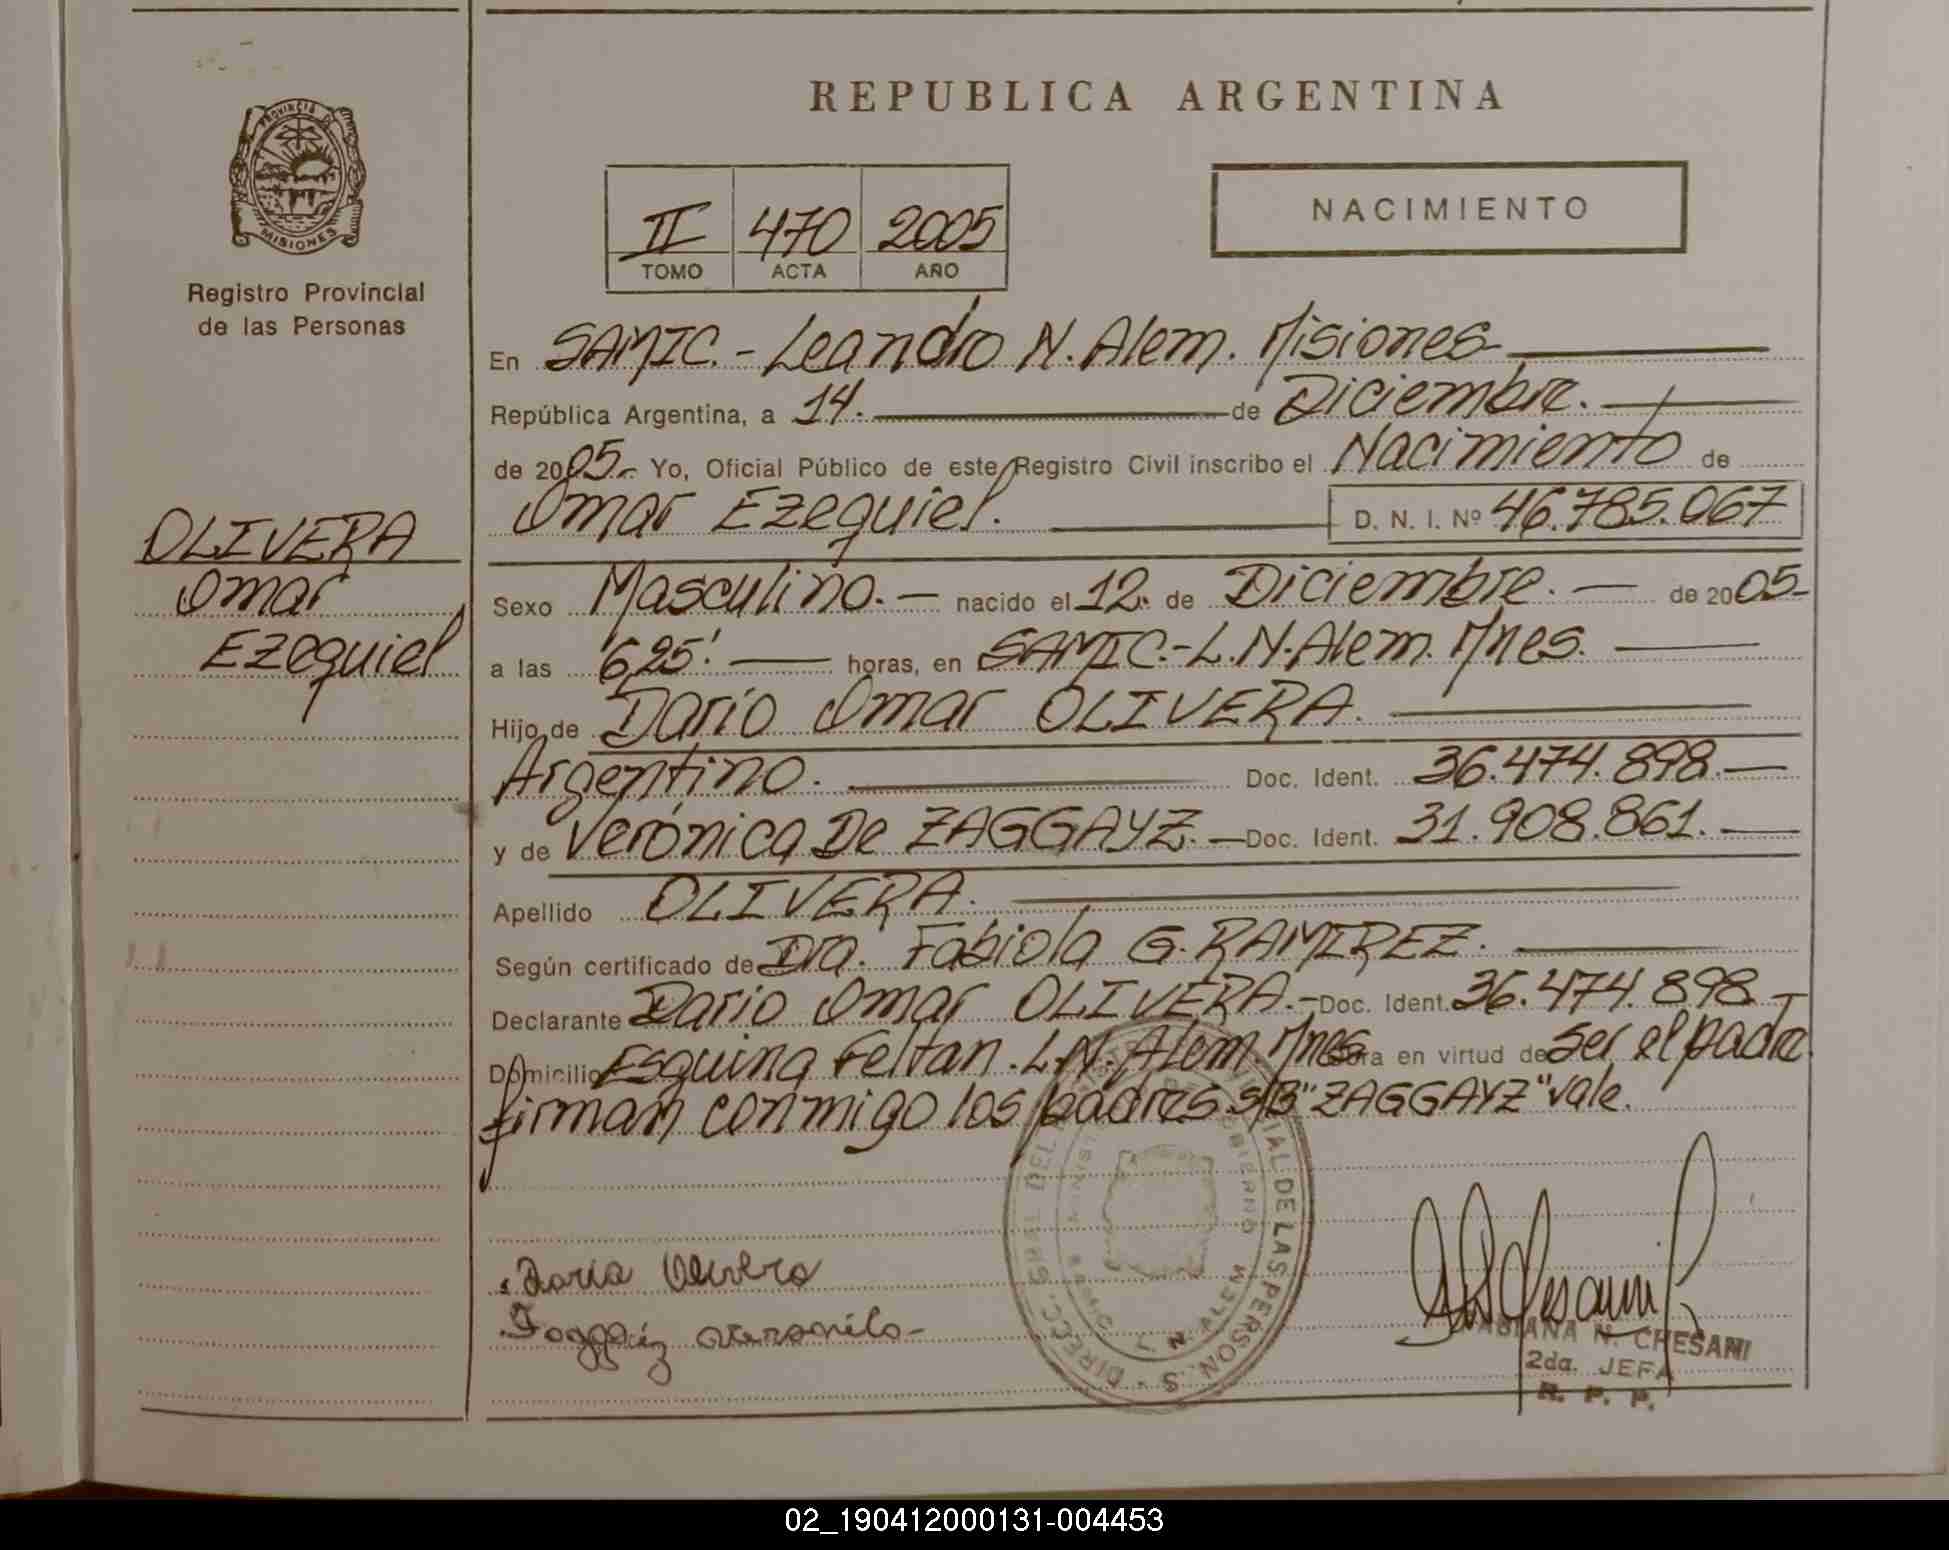 REPUBLICA ARGENTINA
PROVINCIA DE
MISIONES
Registro Provincial
de las Personas
II 470 2005
TOMO ACTA AÑO
NACIMIENTO
OLIVERA
Omar
Ezequiel
En SAMIC.- Leandro N. Alem. Misiones
República Argentina, a 14. de Diciembre.
de 2005.- Yo, Oficial Público de este Registro Civil inscribo el Nacimiento de
Omar Ezequiel. D. N. I. Nº 46.785.067
Sexo Masculino.- nacido el 12. de Diciembre.- de 2005-
a las '6,25'. horas, en SAMIC.-L.N.Alem. Mnes.
Hijo de Darío Omar OLIVERA.
Argentino. Doc. Ident. 36.474.898.-
y de Verónica De ZAGGAYZ.- Doc. Ident. 31.908.861.-
Apellido OLIVERA.
Según certificado de Dra. Fabiola G. RAMIREZ.
Declarante Dario Omar OLIVERA.- Doc. Ident. 36.474.898-
Domicilio Esquina Feltan. L.N. Alem Mnes. en virtud de ser el padre.
firman conmigo los padres s/B "ZAGGAYZ" vale.
L. N. ALEM
FABIANA N. CHESANI
2da. JEFA
R. P. P.
02_190412000131-004453